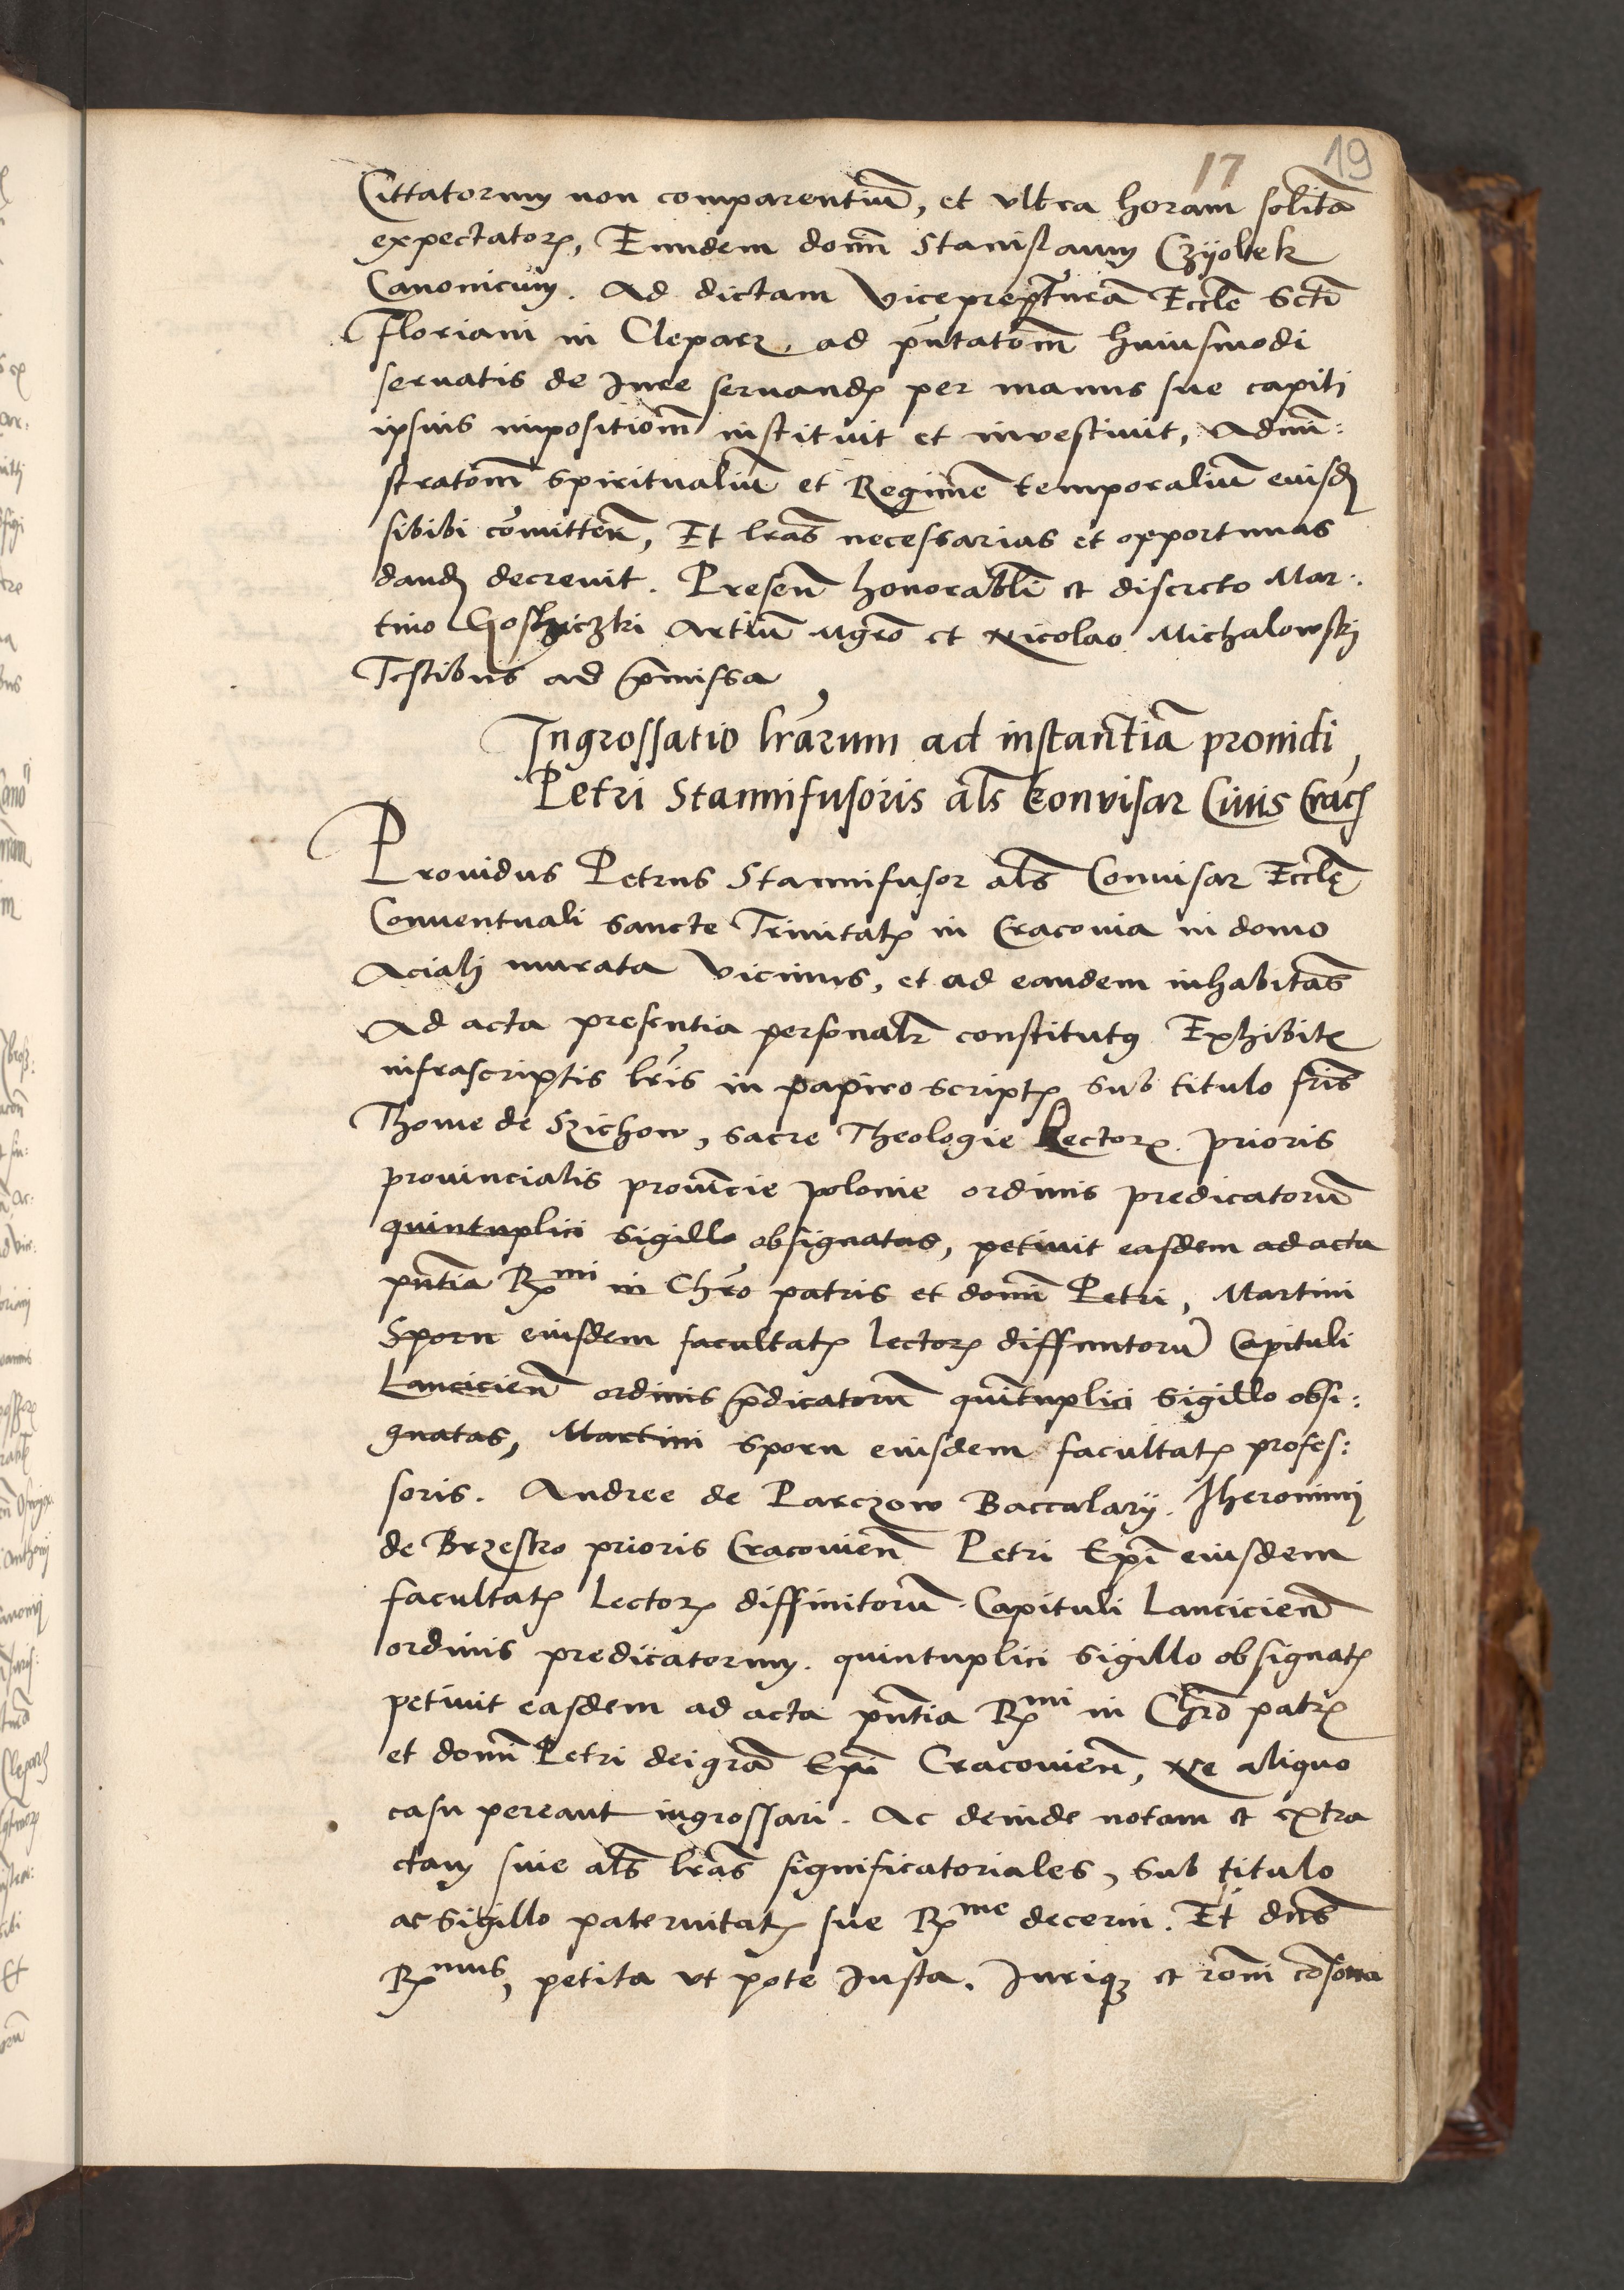 17 19
Cittatorum non comparentiu͂, et vltra horam solita͂
expectatoꝝ, Eundem dom͂ Stanislaum Czyolek
Canonicum. Ad dictam Vicepreptura͂ Eccle͂ Scti͂
Floriani in Cleparz, ad pn͂tatom͂ huiusmodi
seruatis de Jure seruandꝭ per manus sue capiti
ipsius impositiom͂ instituit et inuestiuit, Admi͂:
stratom͂ spiritualiu͂ et Regime͂ temporaliu͂ eiusdꝭ
sibibi co͂mitten͂, Et lr͂as necessarias et opportunas
dandꝭ decreuit. Presen͂ honorabli͂ et discreto Mar:
tino Artiu͂ Mgro͂ et Nicolao Michalowskj
Testibus ad p͂missa
Ingrossatio lr͂arum ad instantia͂ prouidi
Petri Stannifusoris al͂s konvisar Ciuis Cracꝭ
Prouidus Petrus Stannifusor al͂s Conuisar Eccle͂
Conuentuali sancte Trinitatꝭ in Cracouia in domo
Acialj murata vicinus, et ad eandem inhabita͂s
Ad acta presentia personalr͂ constitutꝰ Exhibitꝭ
infrascriptis lr͂is in papiro scriptꝭ sub titulo fr͂is
Thome de Szichow, sacre Theologie Lectorꝭ. prioris
prouincialis proui͂cie polonie ordinis predicatoru͂
quintuplici sigillo obsignatas, petiuit easdem ad acta
pn͂tia Rx͂mi in Chr͂o patris et domi͂ Petri, Martini
Sporn eiusdem facultatꝭ lectorꝭ diffinitoru͂ Capituli
Lancicien͂ ordinis p͂dicatoru͂ qui͂tuplici sigillo obsi:
gnatas, Martini sporn eiusdem facultatꝭ profes:
soris. Andree de Parczow Baccalarij. Jheronimj
de Brzesczo prioris Cracouien͂ Petri Epi͂ eiusdem
facultatꝭ lectorꝭ diffinitoru͂ Capituli Lancicien͂
ordinis predicatorum. quintuplici sigillo obsignatꝭ
petiuit easdem ad acta pn͂tia Rx͂mi in Chr͂o patrꝭ
et domi͂ Petri dei gra͂ Epi͂ Cracouien͂, Ne aliquo
casu pereant ingrossari. Ac deinde notam et extra
ctam siue al͂s lr͂as significatoriales, sub titulo
ac sigillo paternitatꝭ sue Rx͂me decerni. Et dn͂s
Rx͂mus, petita vt pote Justa. Juriqꝫ et rom͂ co͂sona